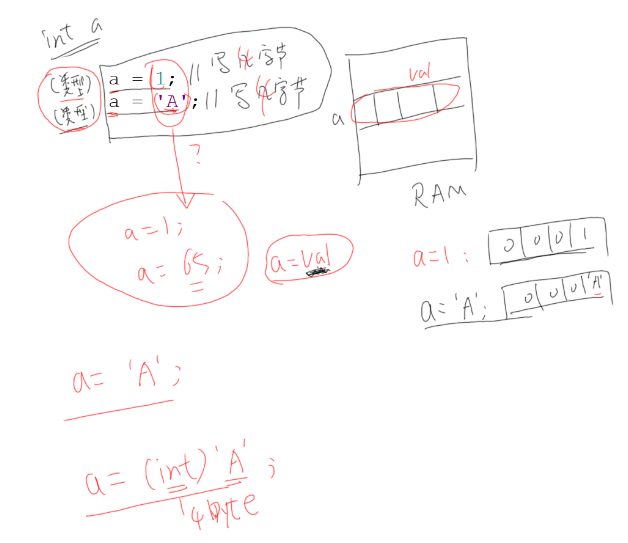 int a
(类型) a = 1; // 写4字节
(类型) a = 'A'; // 写4字节
val
a
RAM
?
a=1;
a= 65;
a=val
a=1: 0 0 0 1
a='A'; 0 0 0 'A'
a= 'A';
a= (int)'A';
4byte